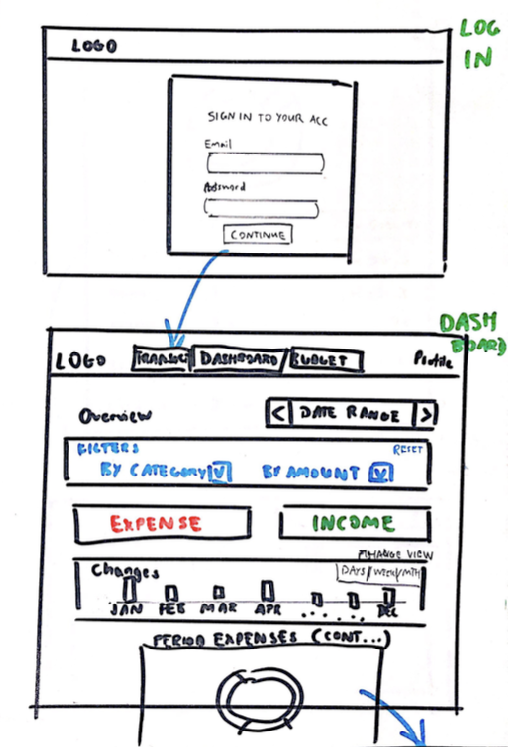 LOG
IN
LOGO
SIGN IN TO YOUR ACC
Email
Password
CONTINUE
DASH
BOARD
LOGO
DASHBOARD
BUDGET
Profile
Overview
< DATE RANGE >
FILTERS
RESET
BY CATEGORY V
BY AMOUNT V
EXPENSE
INCOME
CHANGE VIEW
Changes
DAYS/WEEK/MTH
JAN FEB MAR APR . . . . . DEC
PERIOD EXPENSES (CONT...)